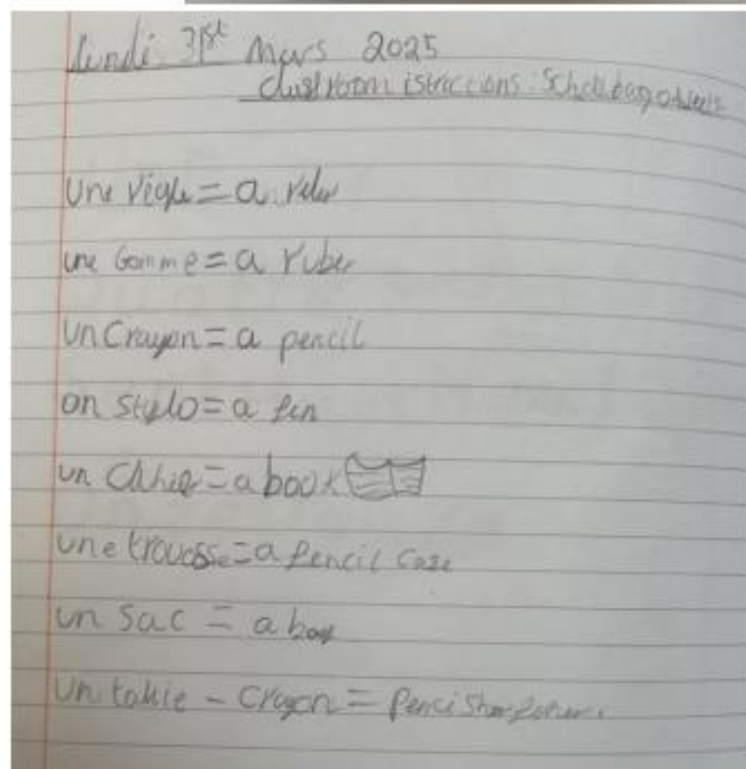 lundi 31st Mars 2025
classroom istructions: School bag objects
une règle = a ruler
une Gomme = a ruber
un Crayon = a pencil
on stylo = a pen
un Cahie = a book
une trousse = a pencil case
un sac = a bag
un takie - crayon = pencil sharpener.